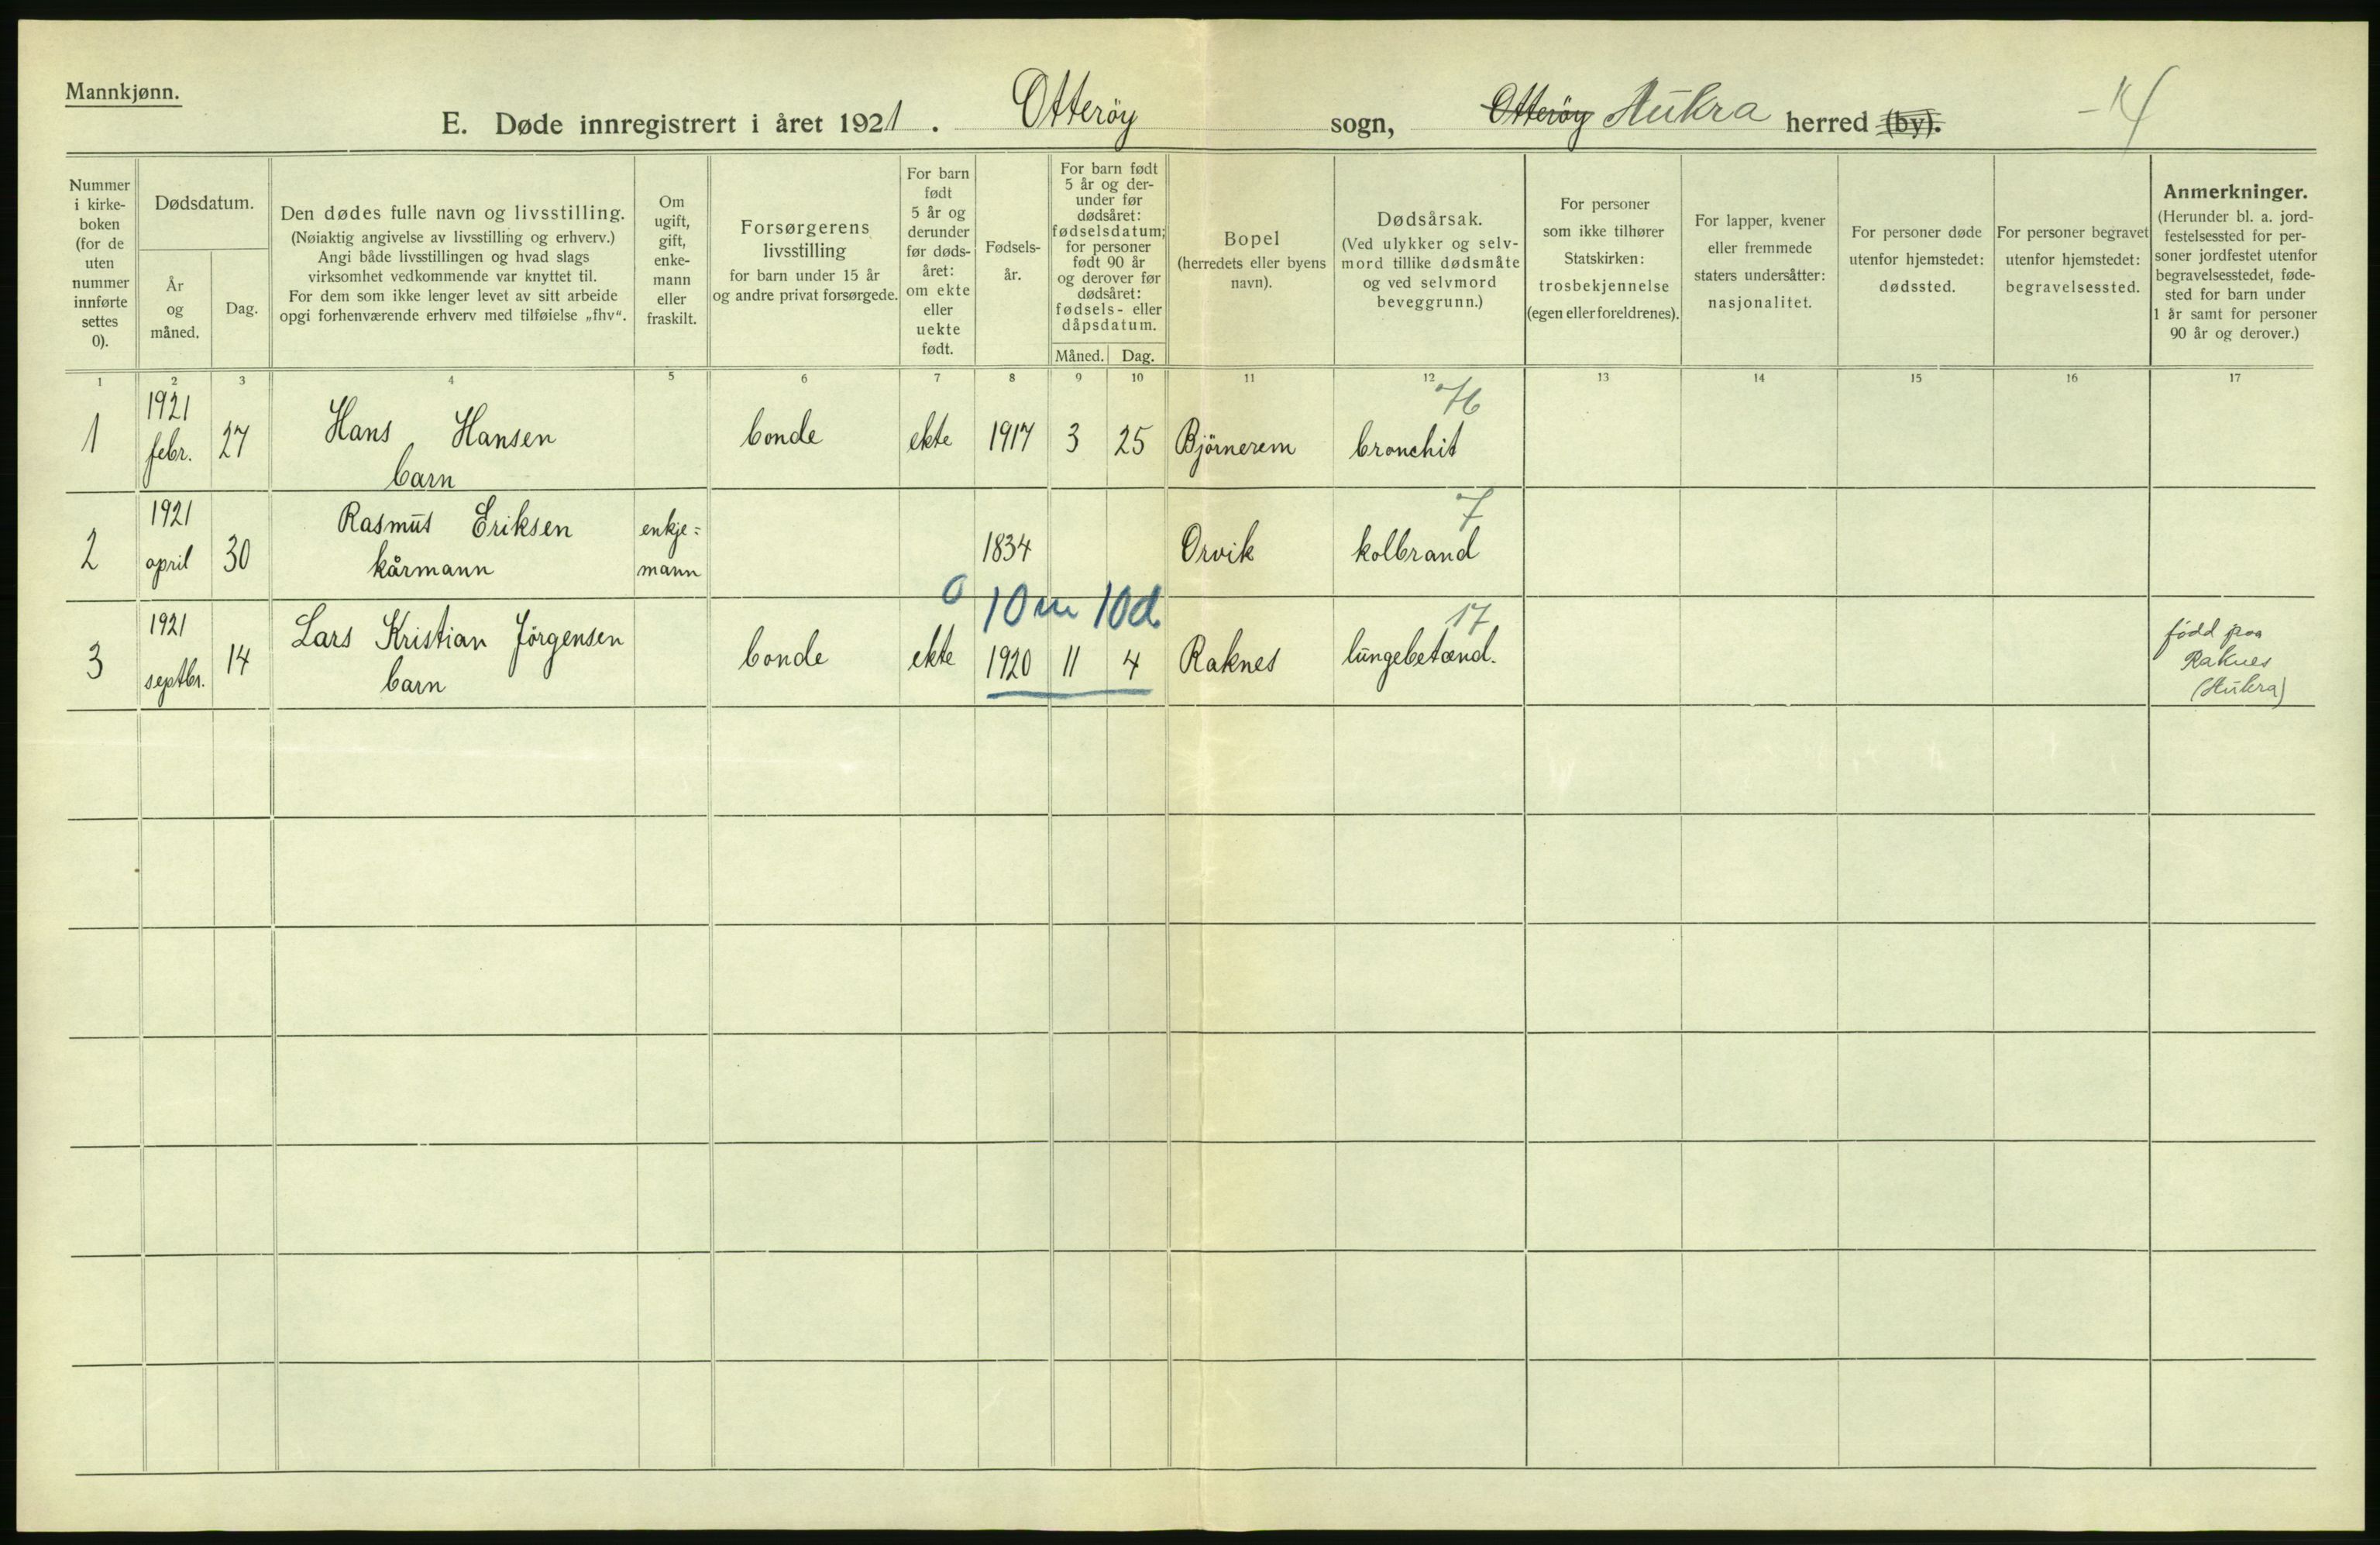 Mannkjønn.
E. Døde innregistrert i året 1921. Otterøy sogn, Otterøy Aukra herred (by).
Nummer
i kirke-
boken
(for de
uten
nummer
innførte
settes
0).
Dødsdatum.
År
og
måned.
Dag.
Den dødes fulle navn og livsstilling.
(Nøiaktig angivelse av livsstilling og erhverv.)
Angi både livsstillingen og hvad slags
virksomhet vedkommende var knyttet til.
For dem som ikke lenger levet av sitt arbeide
opgi forhenværende erhverv med tilføielse „fhv“.
Om
ugift,
gift,
enke-
mann
eller
fraskilt.
Forsørgerens
livsstilling
for barn under 15 år
og andre privat forsørgede.
For barn
født
5 år og
derunder
før døds-
året:
om ekte
eller
uekte
født.
Fødsels-
år.
For barn født
5 år og der-
under før
dødsåret:
fødselsdatum;
for personer
født 90 år
og derover før
dødsåret:
fødsels- eller
dåpsdatum.
Måned. Dag.
Bopel
(herredets eller byens
navn).
Dødsårsak.
(Ved ulykker og selv-
mord tillike dødsmåte
og ved selvmord
beveggrunn.)
For personer
som ikke tilhører
Statskirken:
trosbekjennelse
(egen eller foreldrenes).
For lapper, kvener
eller fremmede
staters undersåtter:
nasjonalitet.
For personer døde
utenfor hjemstedet:
dødssted.
For personer begravet
utenfor hjemstedet:
begravelsessted.
Anmerkninger.
(Herunder bl. a. jord-
festelsessted for per-
soner jordfestet utenfor
begravelsesstedet, føde-
sted for barn under
1 år samt for personer
90 år og derover.)
1 2 3 4 5 6 7 8 9 10 11 12 13 14 15 16 17
1921
1 febr. 27 Hans Hansen bonde ekte 1917 3 25 Bjørnerem bronchit
barn
1921 7
Rasmus Eriksen enkje=
2 april 30 kårmann mann 1834 Orvik kolbrand
0 10m 10d.
1921 17
3 septbr. 14 Lars Kristian Jörgensen bonde ekte 1920 11 4 Raknes lungebetænd.
barn
född paa
Raknes
(Aukra)